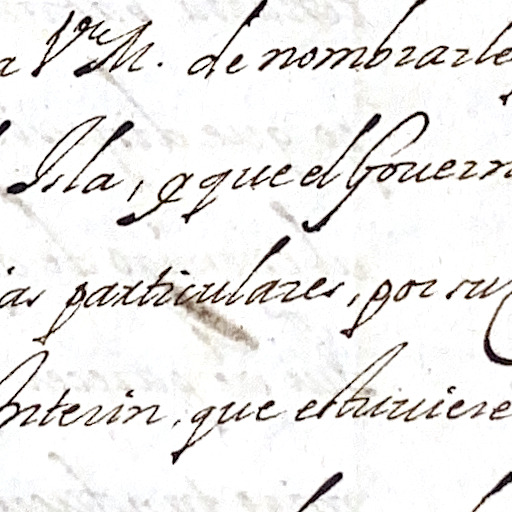 a Vre M. de nombrarle
Isla, y que el Gouern
ias particulares, por su
Interin, que estuuiere